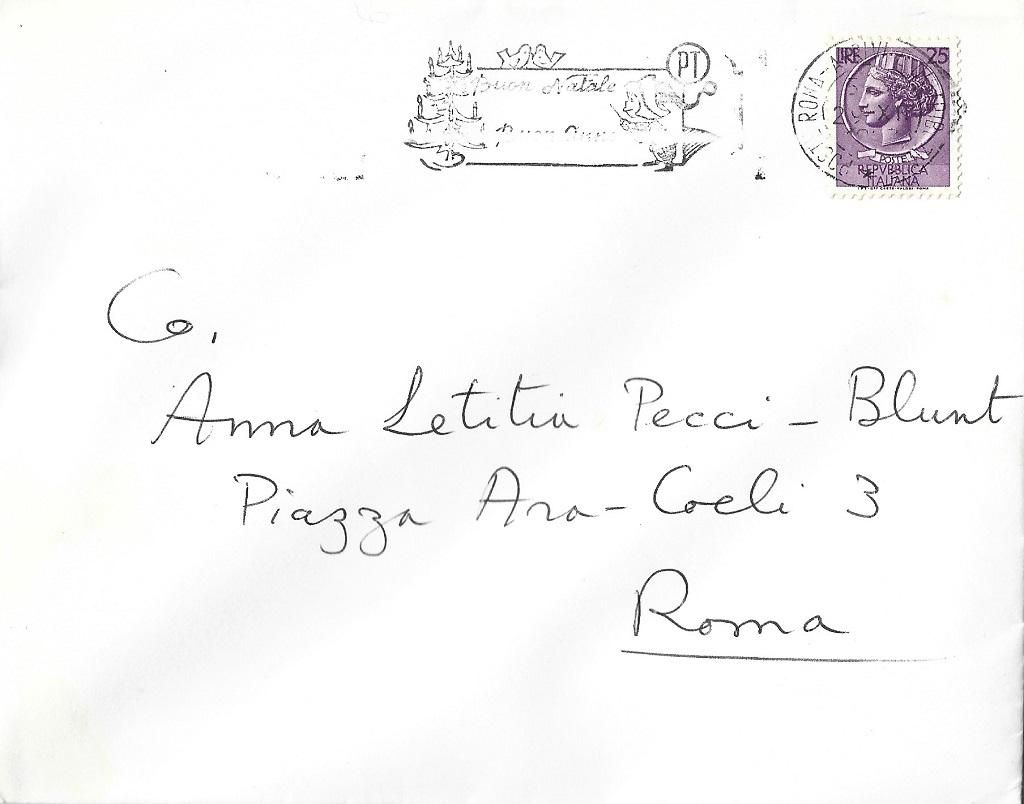 PT
Buon Natale
Buon Anno
ROMA
LIRE 25
POSTE
REPVBBLICA
ITALIANA
Co.
Anna Letitia Pecci - Blunt
Piazza Ara - Coeli 3
Roma